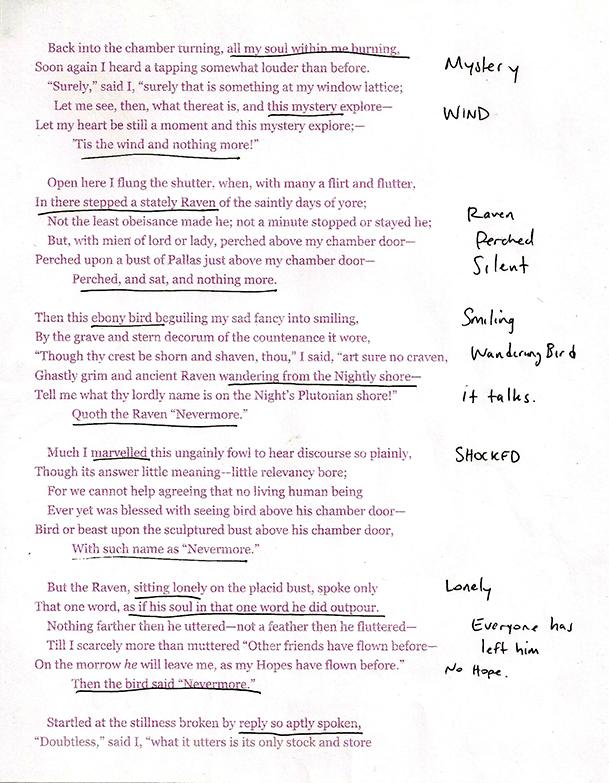 Back into the chamber turning, all my soul within me burning,
Soon again I heard a tapping somewhat louder than before. Mystery
“Surely,” said I, “surely that is something at my window lattice;
Let me see, then, what thereat is, and this mystery explore— WIND
Let my heart be still a moment and this mystery explore;—
'Tis the wind and nothing more!”
Open here I flung the shutter, when, with many a flirt and flutter,
In there stepped a stately Raven of the saintly days of yore;
Not the least obeisance made he; not a minute stopped or stayed he; Raven
But, with mien of lord or lady, perched above my chamber door— Perched
Perched upon a bust of Pallas just above my chamber door— Silent
Perched, and sat, and nothing more.
Then this ebony bird beguiling my sad fancy into smiling, Smiling
By the grave and stern decorum of the countenance it wore,
“Though thy crest be shorn and shaven, thou,” I said, “art sure no craven, Wandering Bird
Ghastly grim and ancient Raven wandering from the Nightly shore—
Tell me what thy lordly name is on the Night's Plutonian shore!” it talks.
Quoth the Raven “Nevermore.”
Much I marvelled this ungainly fowl to hear discourse so plainly, SHOCKED
Though its answer little meaning--little relevancy bore;
For we cannot help agreeing that no living human being
Ever yet was blessed with seeing bird above his chamber door—
Bird or beast upon the sculptured bust above his chamber door,
With such name as “Nevermore.”
But the Raven, sitting lonely on the placid bust, spoke only Lonely
That one word, as if his soul in that one word he did outpour.
Nothing farther then he uttered—not a feather then he fluttered— Everyone has
Till I scarcely more than muttered “Other friends have flown before— left him
On the morrow he will leave me, as my Hopes have flown before.” No Hope.
Then the bird said “Nevermore.”
Startled at the stillness broken by reply so aptly spoken,
“Doubtless,” said I, “what it utters is its only stock and store